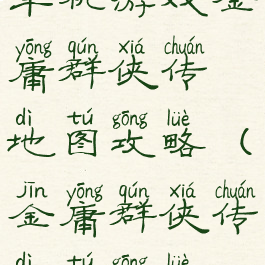 yōng qún xiá chuán
庸群侠传
dì tú gōng lüè
地图攻略（
jīn yōng qún xiá chuán
金庸群侠传
dì tú gōng lüè